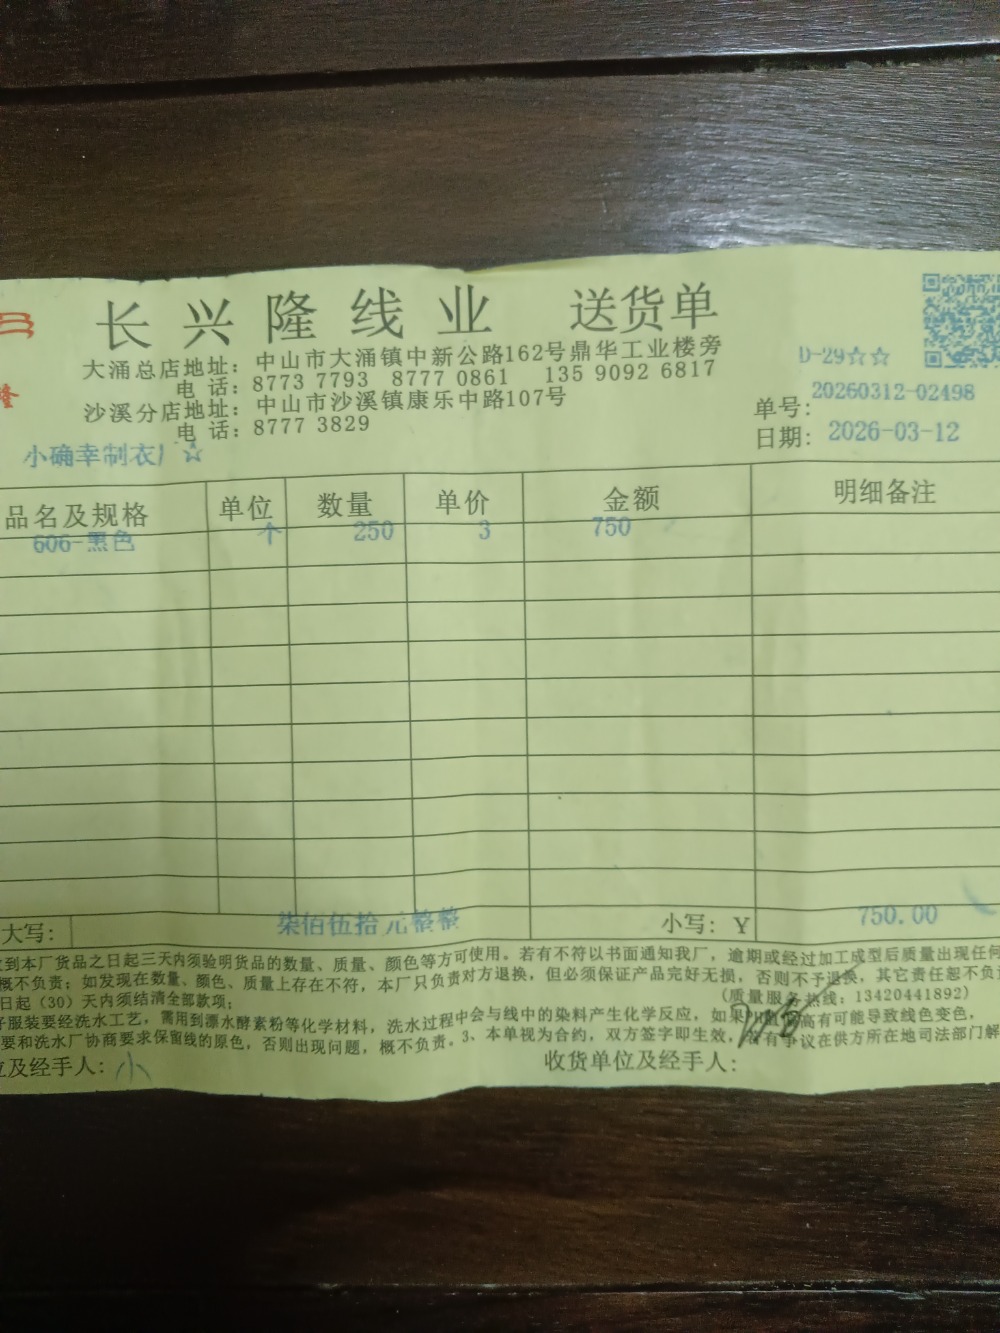 隆
长兴隆线业 送货单
大涌总店地址：中山市大涌镇中新公路162号鼎华工业楼旁
电话：8773 7793 8777 0861 135 9092 6817
沙溪分店地址：中山市沙溪镇康乐中路107号
电话：8777 3829
D-29☆☆
单号：20260312-02498
日期：2026-03-12
小确幸制衣厂☆
品名及规格 单位 数量 单价 金额 明细备注
606-黑色 个 250 3 750
大写： 柒佰伍拾元整整 小写：￥ 750.00
到本厂货品之日起三天内须验明货品的数量、质量、颜色等方可使用。若有不符以书面通知我厂，逾期或经过加工成型后质量出现任何
概不负责；如发现在数量、颜色、质量上存在不符，本厂只负责对方退换，但必须保证产品完好无损，否则不予退换，其它责任恕不负
日起（30）天内须结清全部款项；
(质量服务热线：13420441892)
服装要经洗水工艺，需用到漂水酵素粉等化学材料，洗水过程中会与线中的染料产生化学反应，如果 高有可能导致线色变色，
要和洗水厂协商要求保留线的原色，否则出现问题，概不负责。3、本单视为合约，双方签字即生效，若有争议在供方所在地司法部门解
及经手人：小
收货单位及经手人：